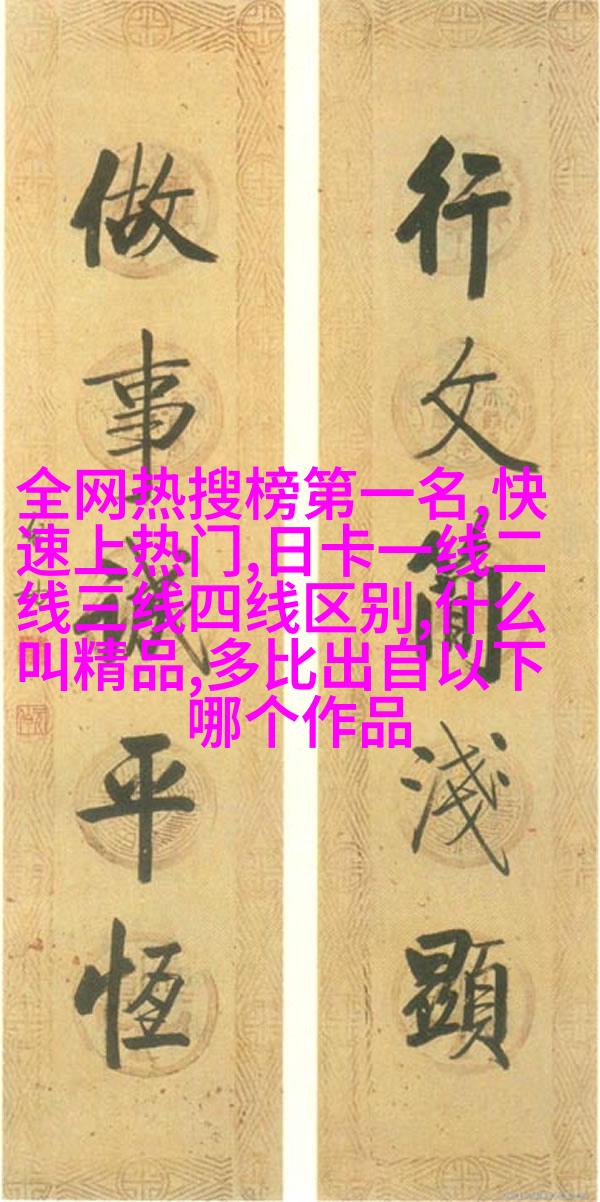 行文簡淺顯
做事誠平恆
全网热搜榜第一名,快
速上热门,日卡一线二
线三线四线区别,什么
叫精品,多比出自以下
哪个作品